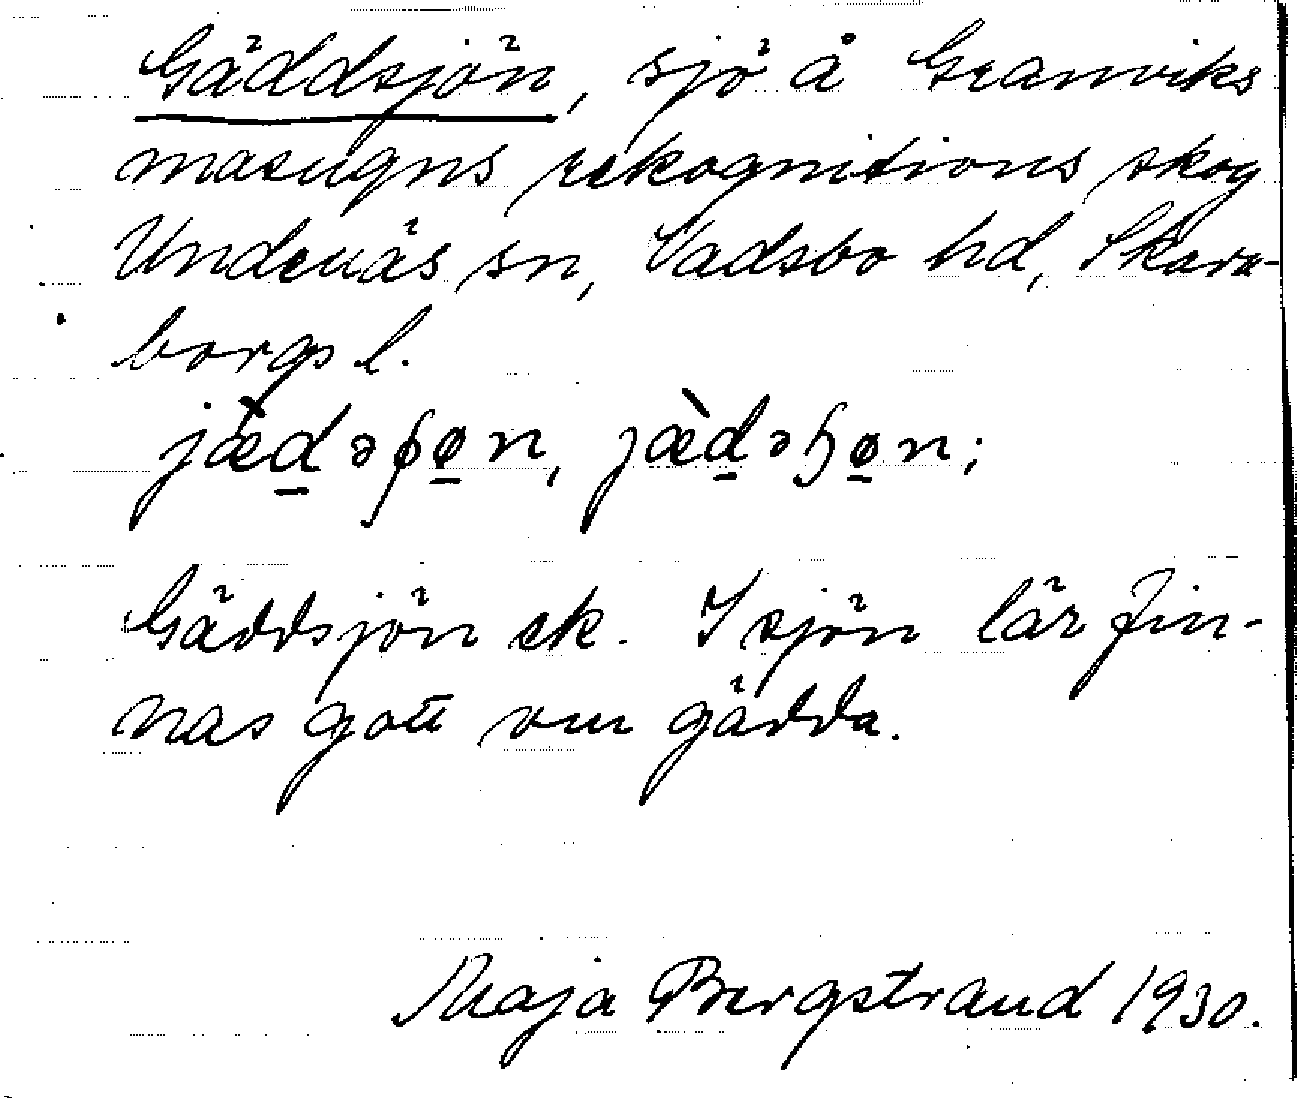 Gäddsjön, sjö å Granviks
masugns rekognitions skog
Undenäs sn, Vadsbo hd, Skara-
borgs l.
jæ̀d̠əʃø̠n, jæ̀d̠əɧø̠n;
Gäddsjön ek. I sjön lär fin-
nas gott om gädda.
Maja Bergstrand 1930.